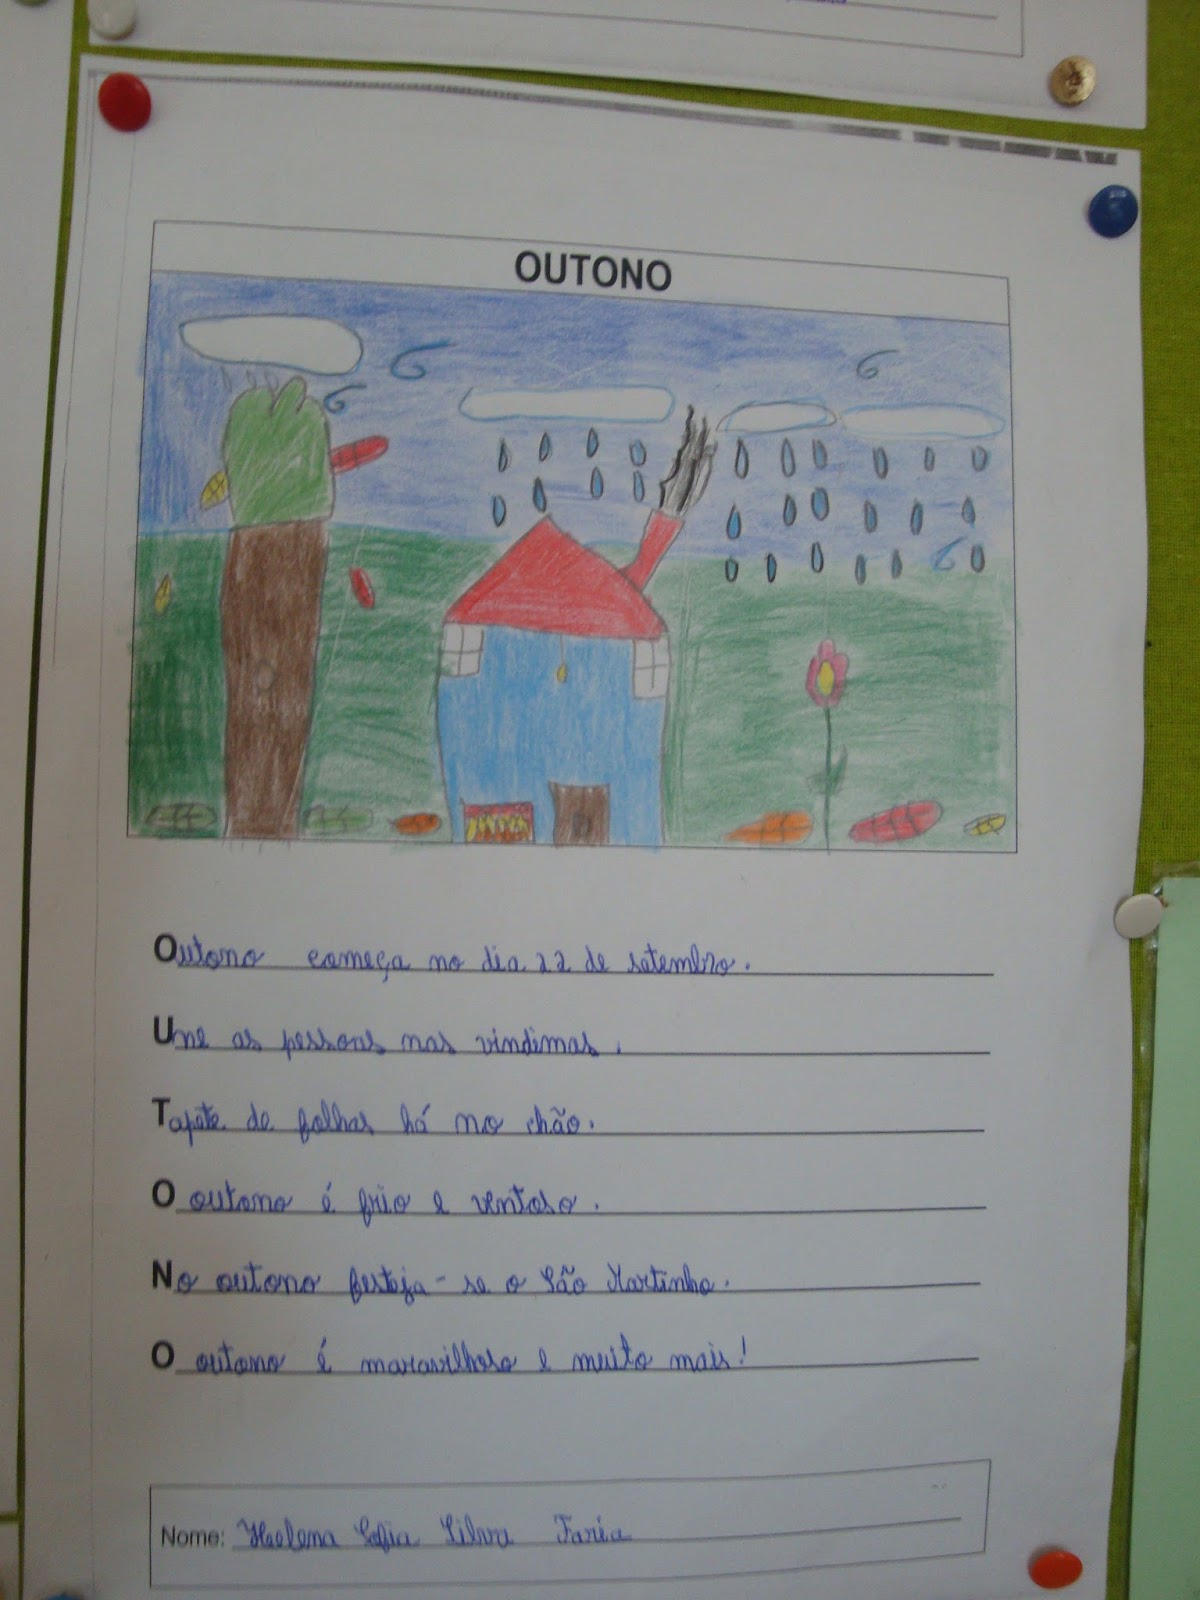 OUTONO
Outono começa no dia 22 de setembro.
Une as pessoas nas vindimas.
Tapete de folhas há no chão.
O outono é frio e ventoso.
No outono festeja-se o São Martinho.
O outono é maravilhoso e muito mais!
Nome: Helena Sofia Silva Faria